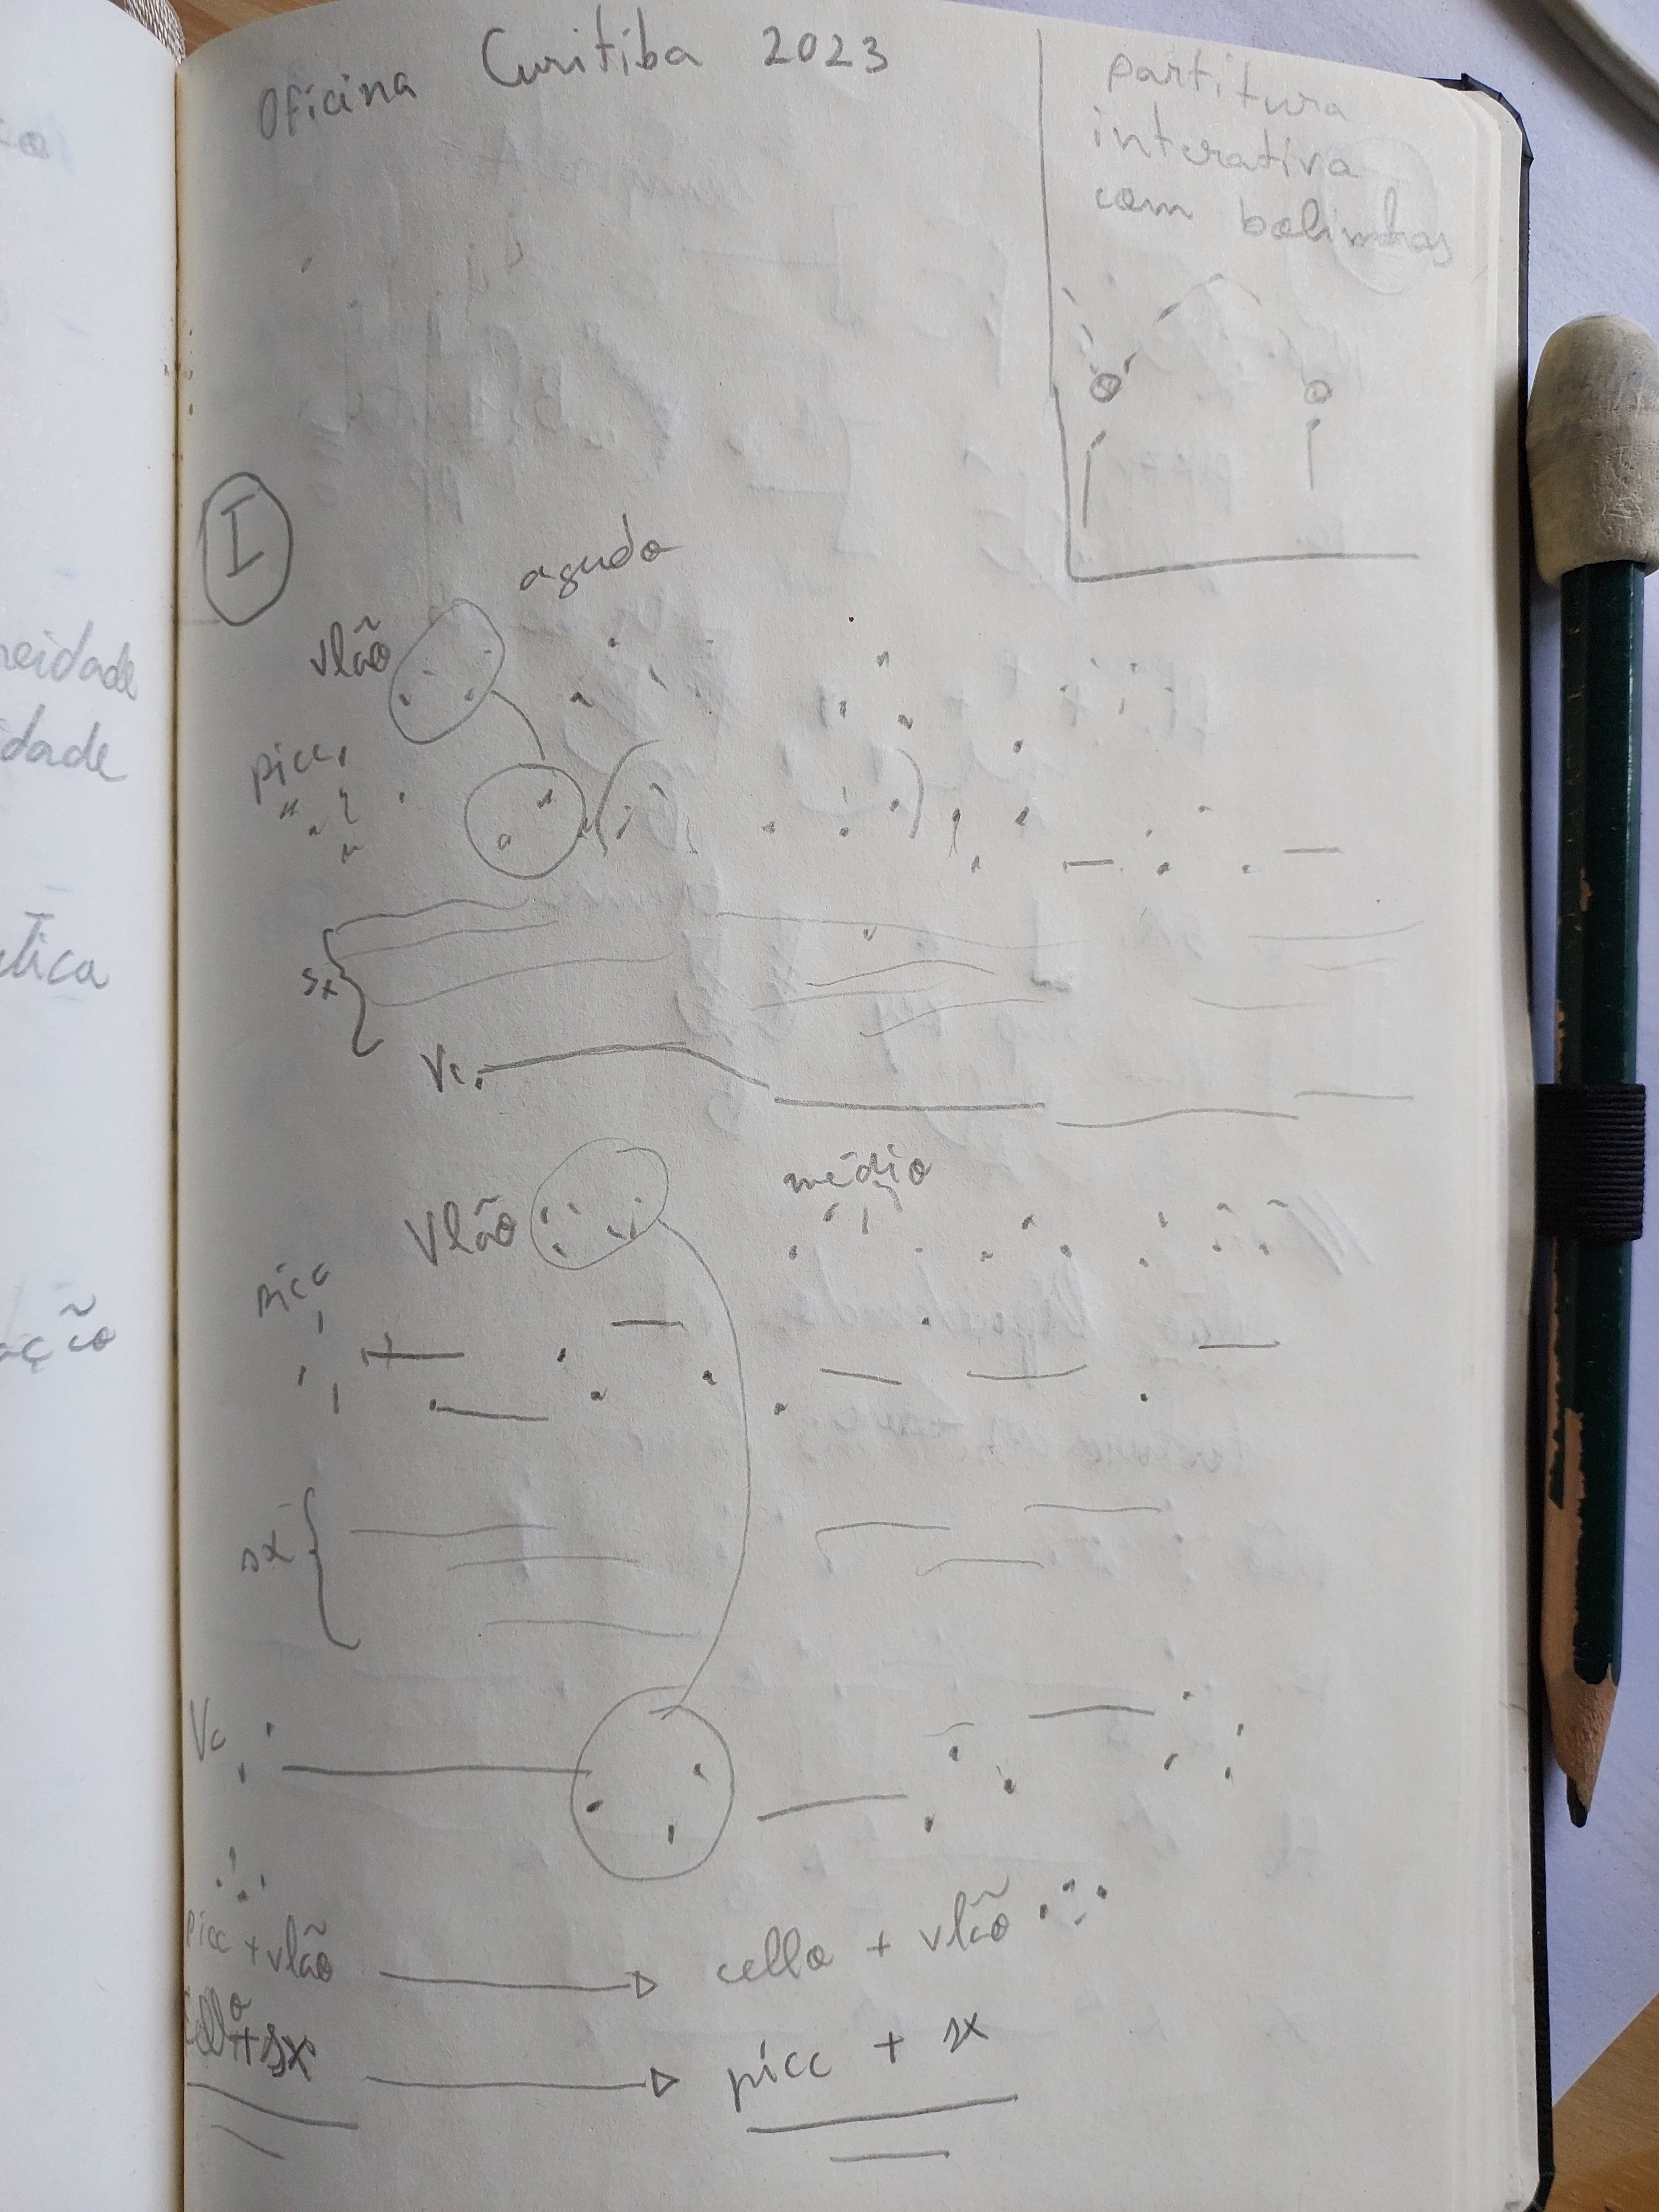 Oficina Curitiba 2023
partitura
interativa
com bolinhas
I
agudo
vlão
picc.
sx
Vc.
médio
Vlão
picc
sx
Vc
picc + vlão
cello + vlão
cello + sx
picc + sx
neidade
idade
ética
ação